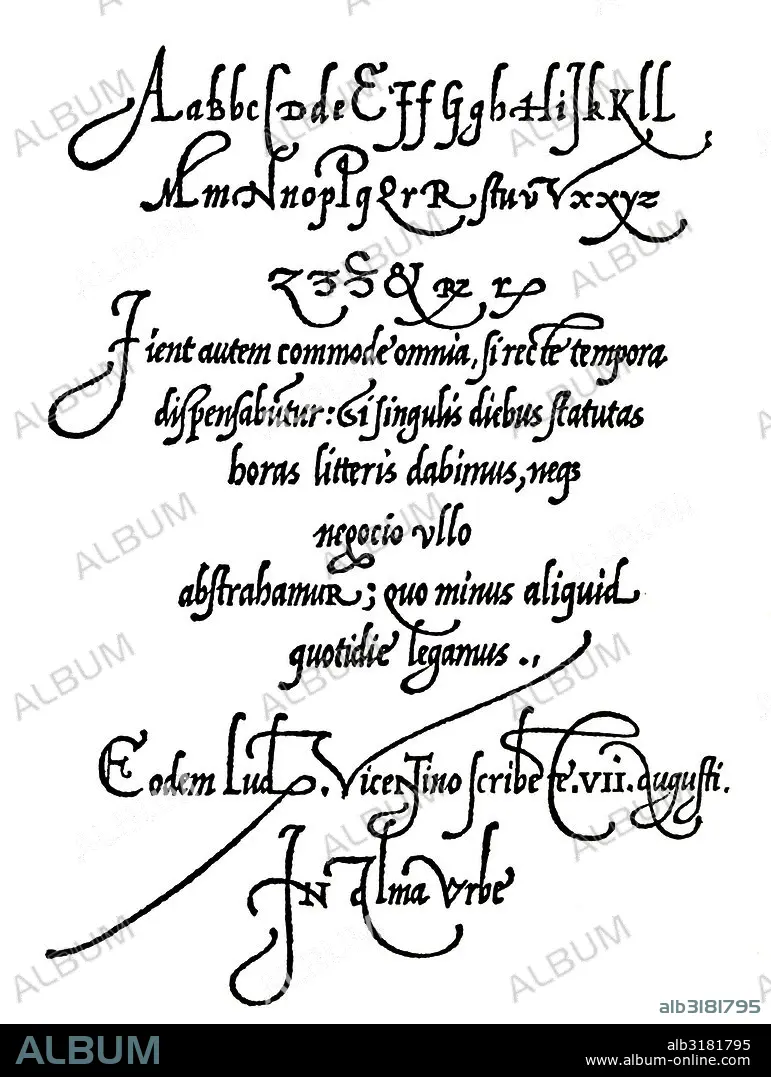 AaBbcſDdeEFfGghHiJkKlL
MmNnopPqQrRſtuvVxxyz
ZƷS&Rz
Fient autem commode omnia, ſi recte tempora
diſpenſabūtur: & ſi ſingulis diebus ſtatutas
horas litteris dabimus, neqȝ
negocio vllo
abſtrahamuR; quo minus aliquid
quotidie legamus .,
Eodem Lud. Vicentino ſcribente. VII. auguſti.
IN Alma Vrbe
ALBUM
alb3181795
ALBUM
alb3181795
www.album-online.com